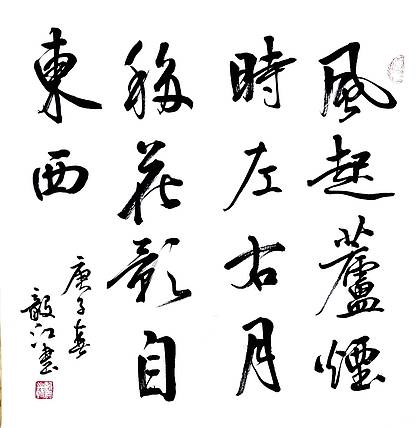 風起蘆煙
時左右月
移花影自
東西
庚子春
江書